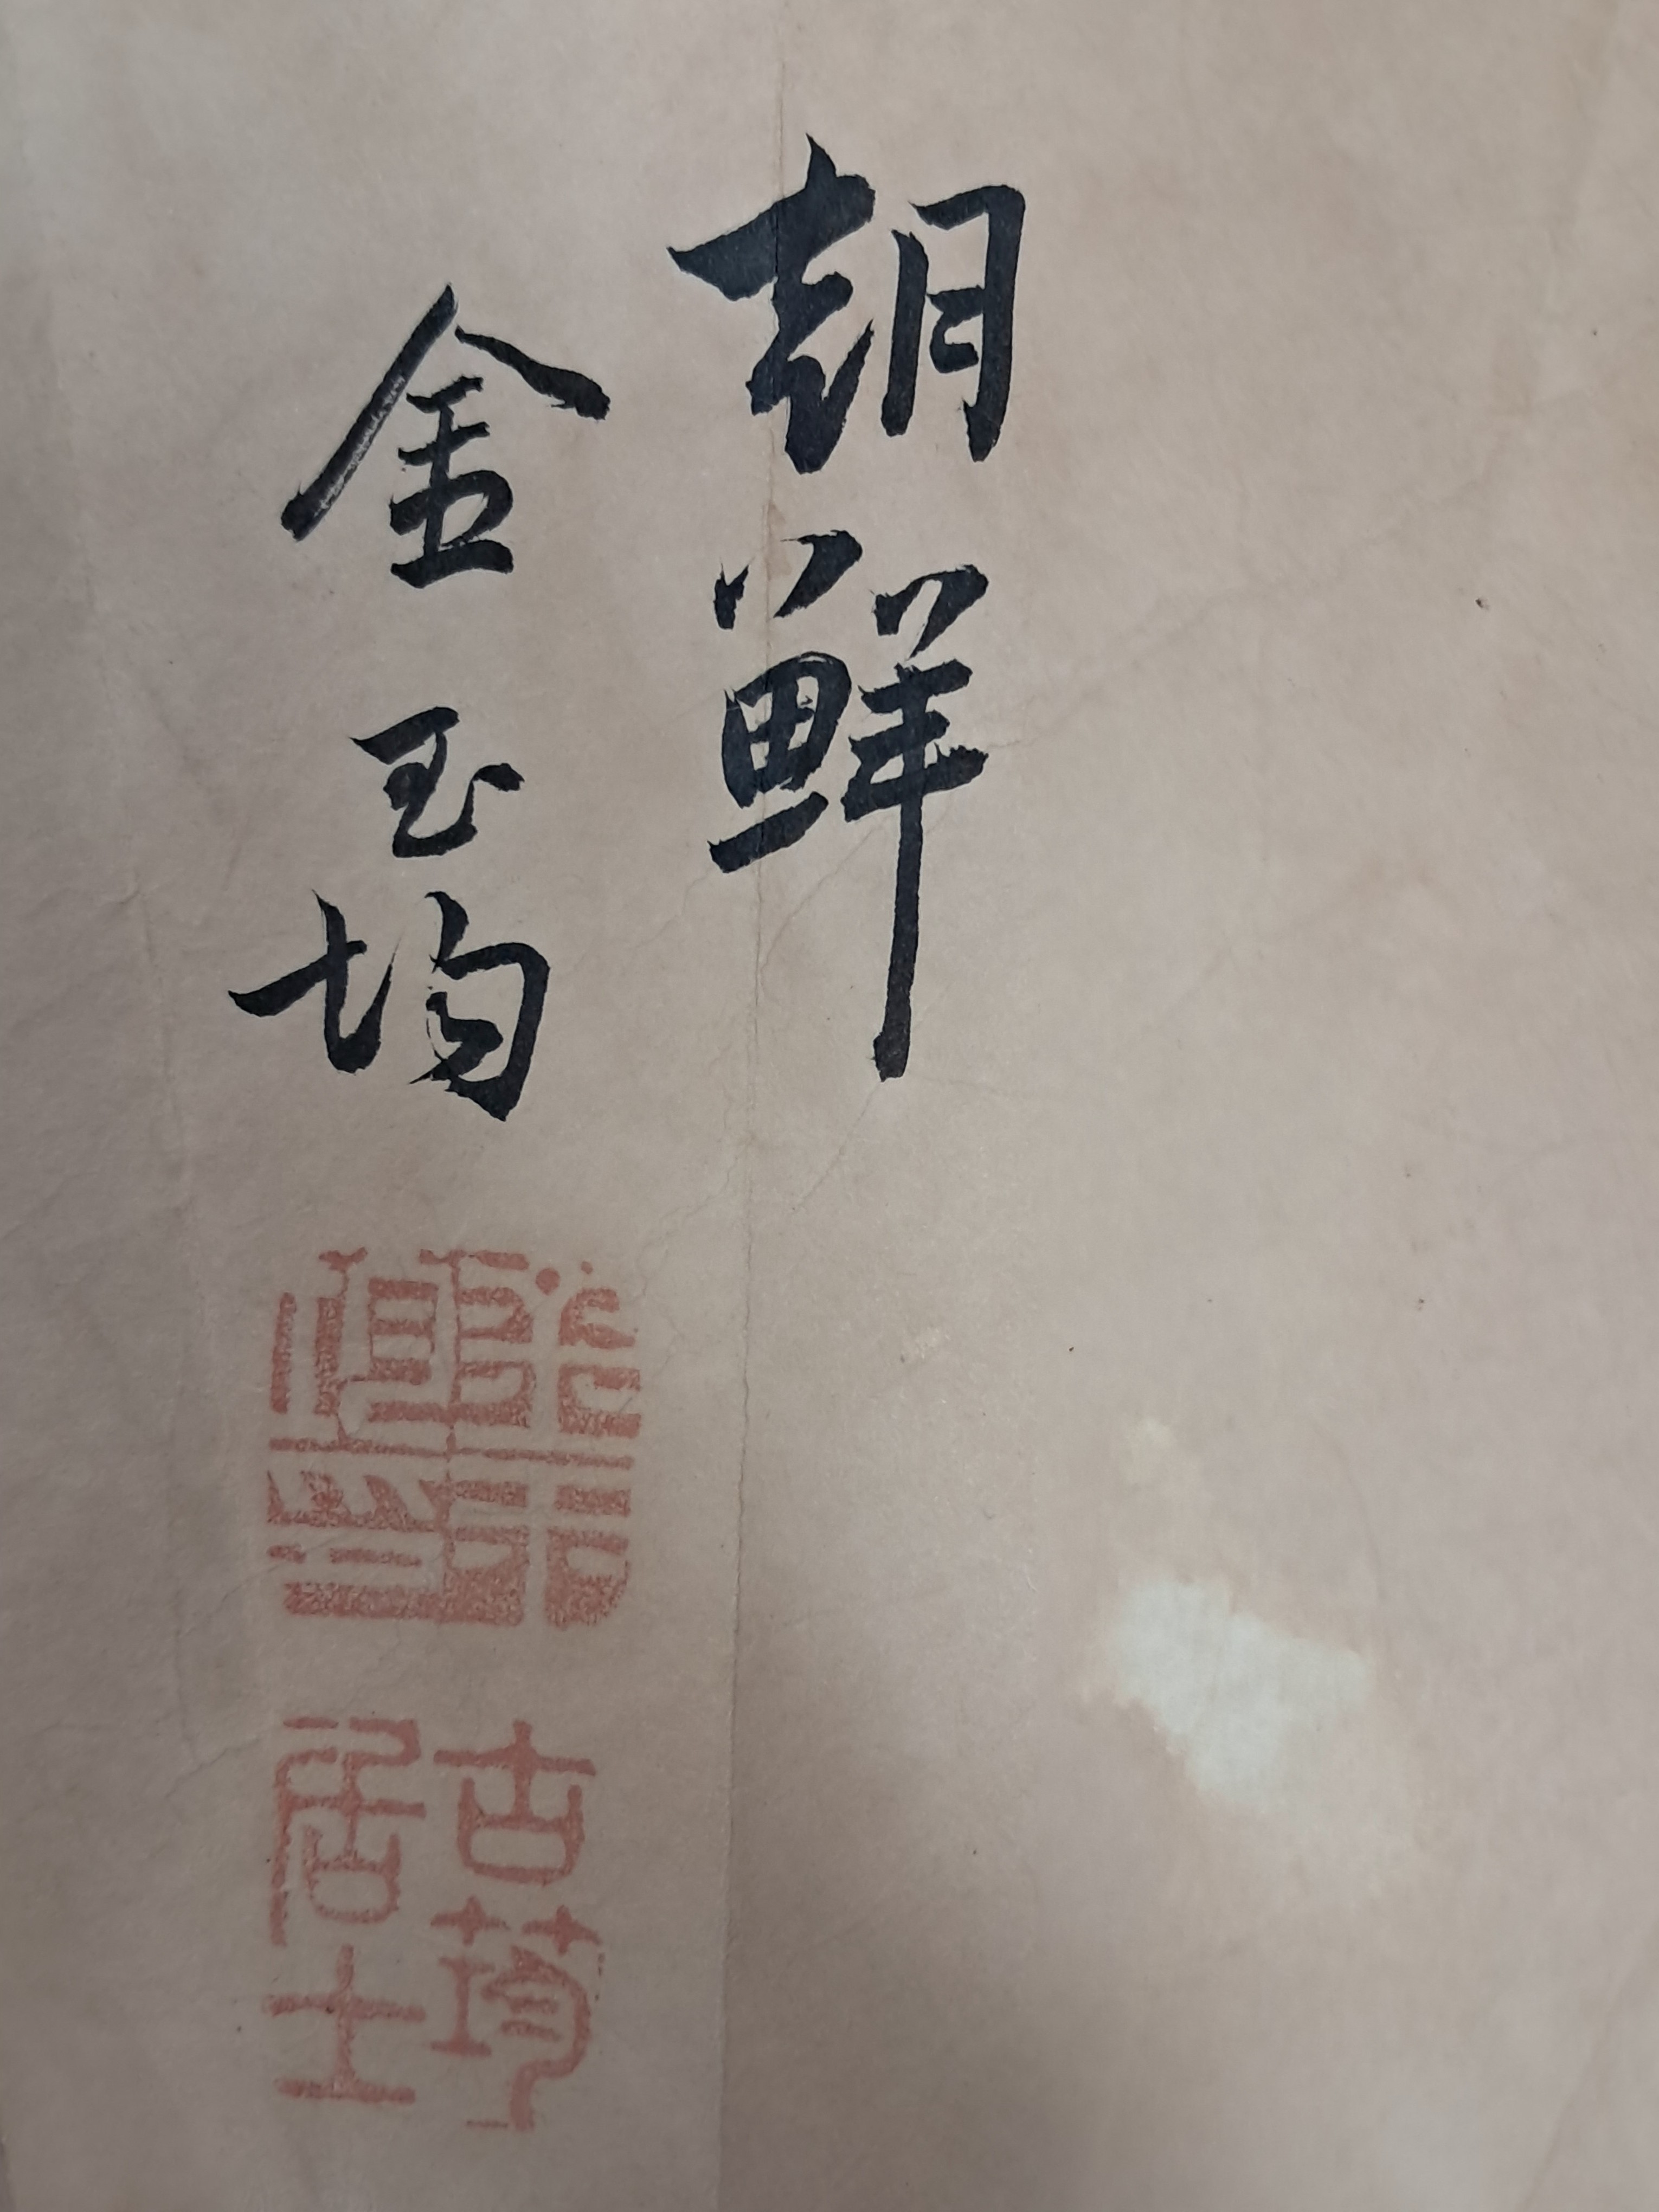 朝鮮
金玉均
古筠
居士